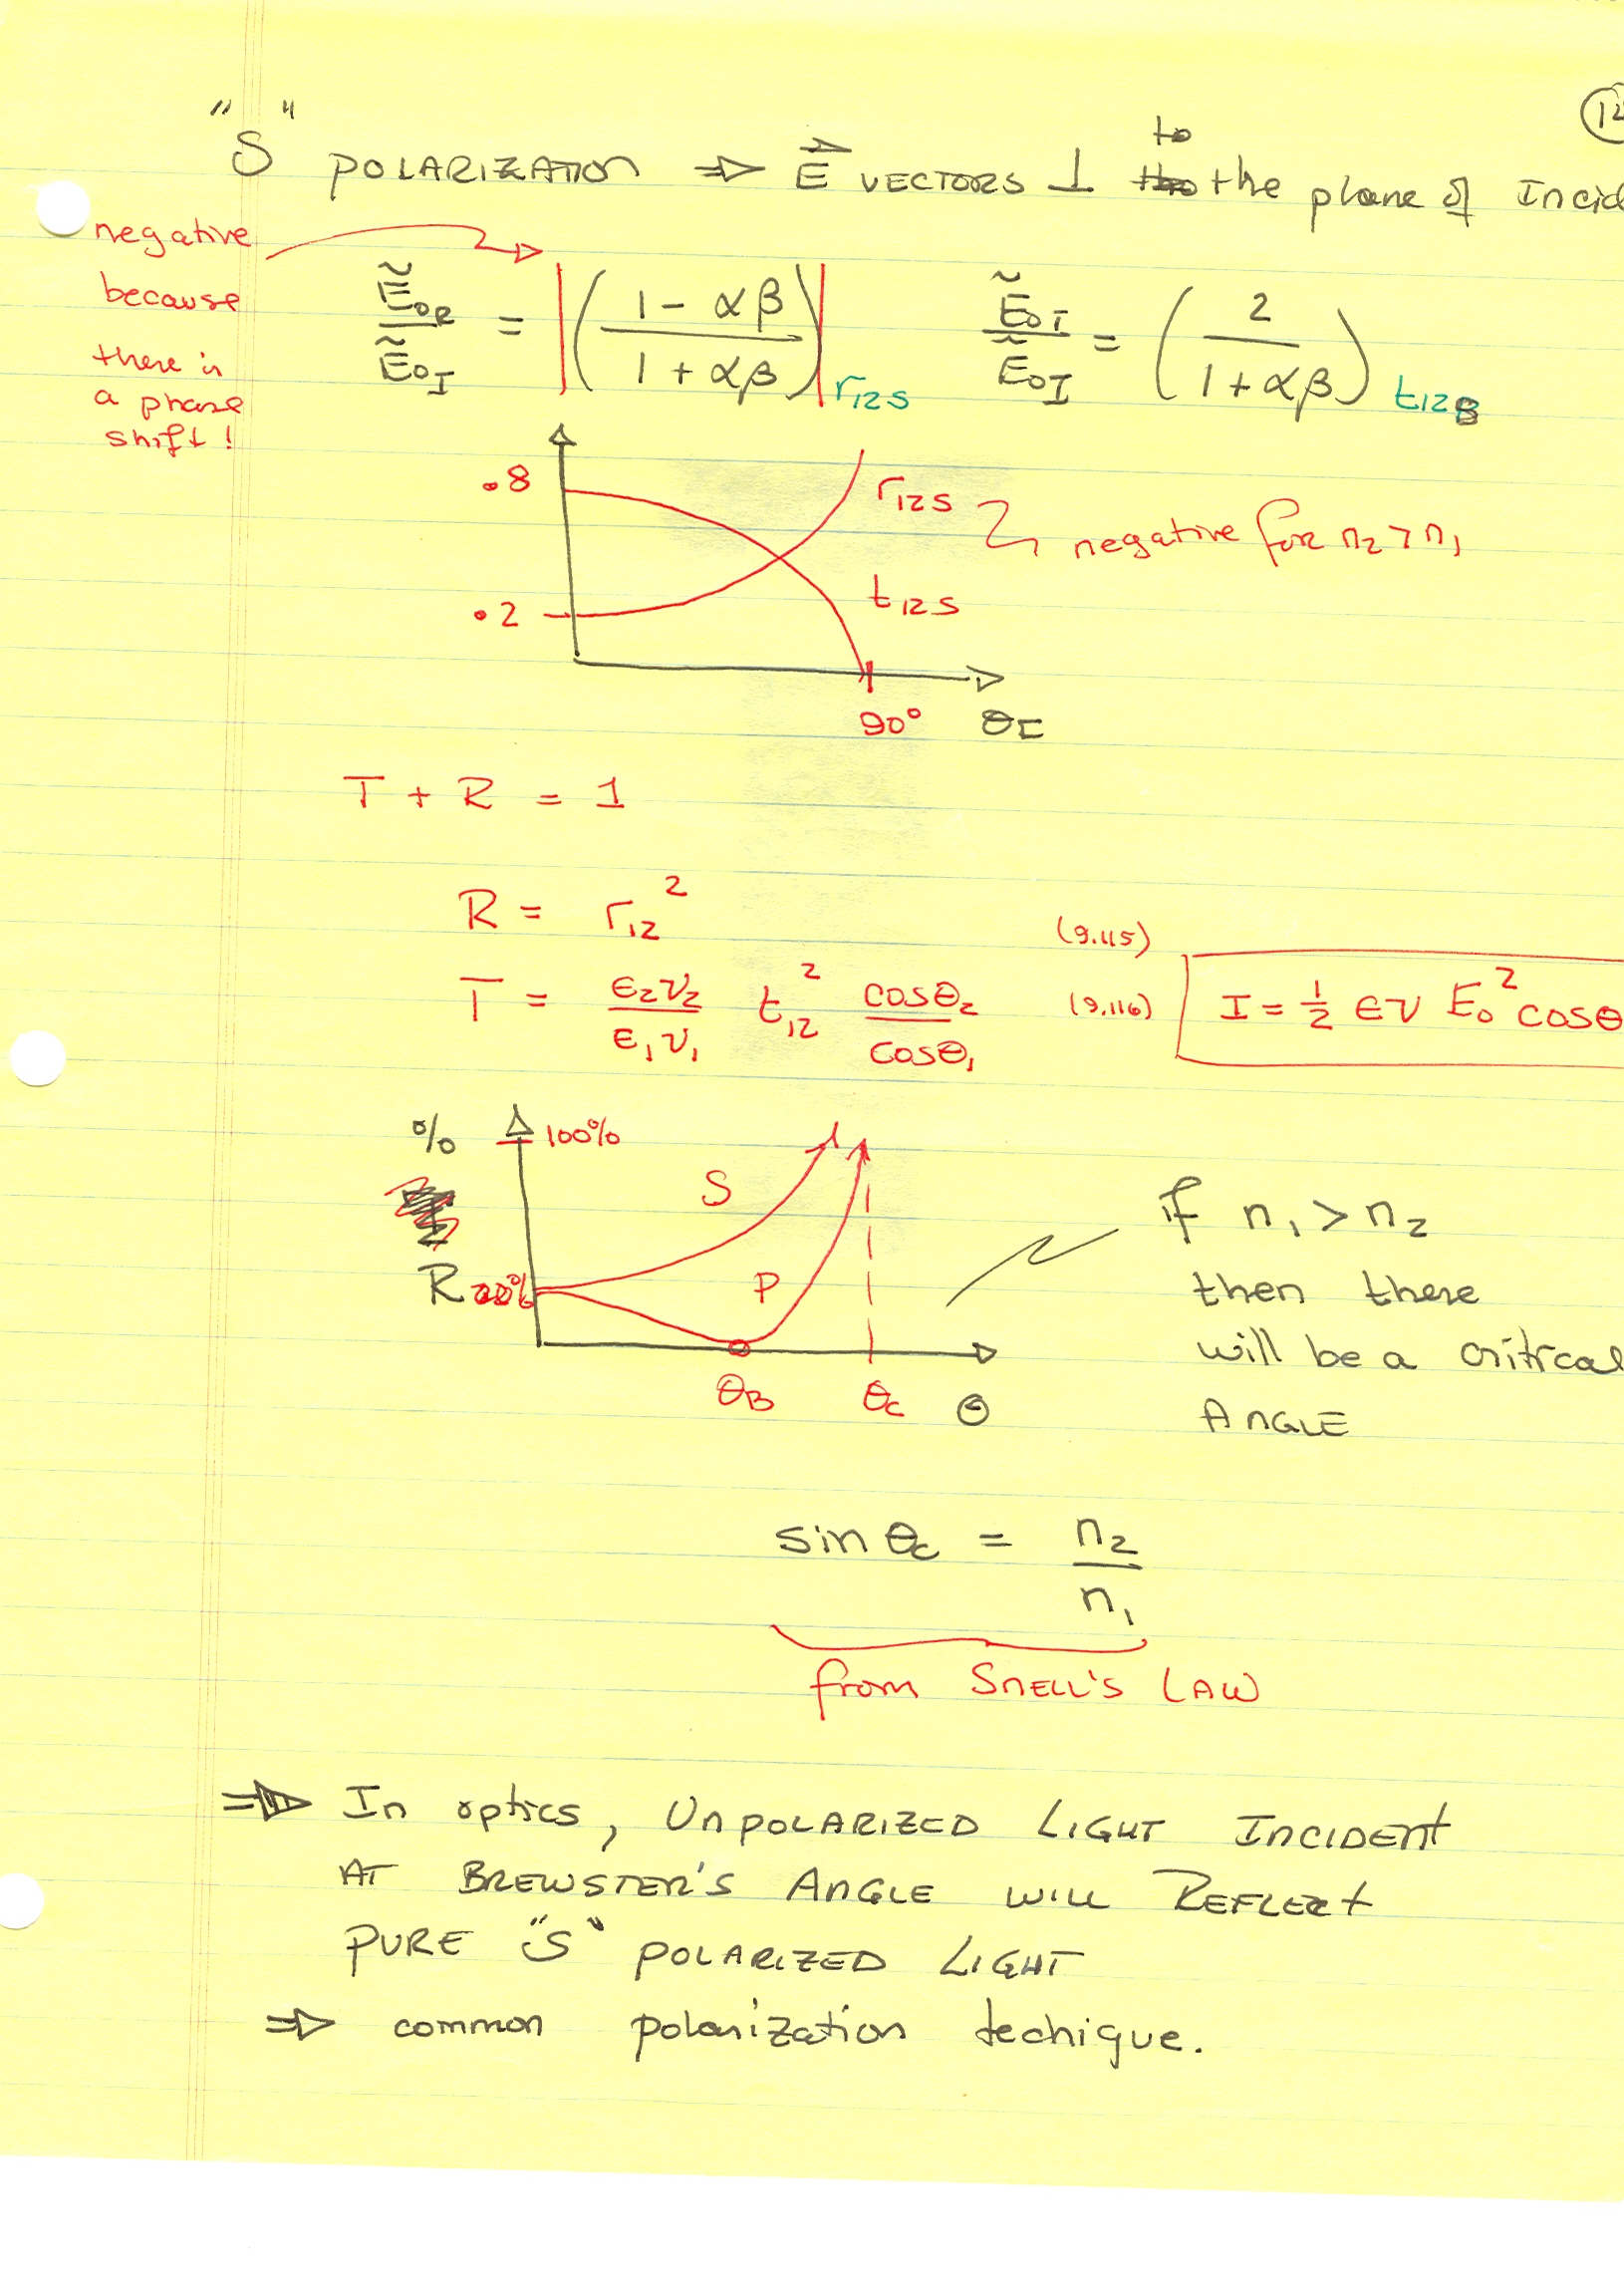 12
"S" POLARIZATION ⇒ E⃗ VECTORS ⊥ to the plane of Incid
negative
because
there is
a phase
shift!
Ẽ0R / Ẽ0I = |( (1 - αβ) / (1 + αβ) )| r12s   Ẽ0T / Ẽ0I = ( 2 / (1 + αβ) ) t12s
.8
r12s
negative for n2 > n1
.2
t12s
90° θI
T + R = 1
R = r12²
(9.115)
T = (ε2v2 / ε1v1) t12² (cosθ2 / cosθ1)
(9.116)
I = ½ εv E0² cosθ
% 100%
S
R 20%
P
θB θc θ
If n1 > n2
then there
will be a critical
ANGLE
sin θc = n2 / n1
from SNELL'S LAW
⇒ In optics, UNPOLARIZED LIGHT INCIDENT
AT BREWSTER'S ANGLE WILL REFLECT
PURE "S" POLARIZED LIGHT
⇒ common polarization techique.